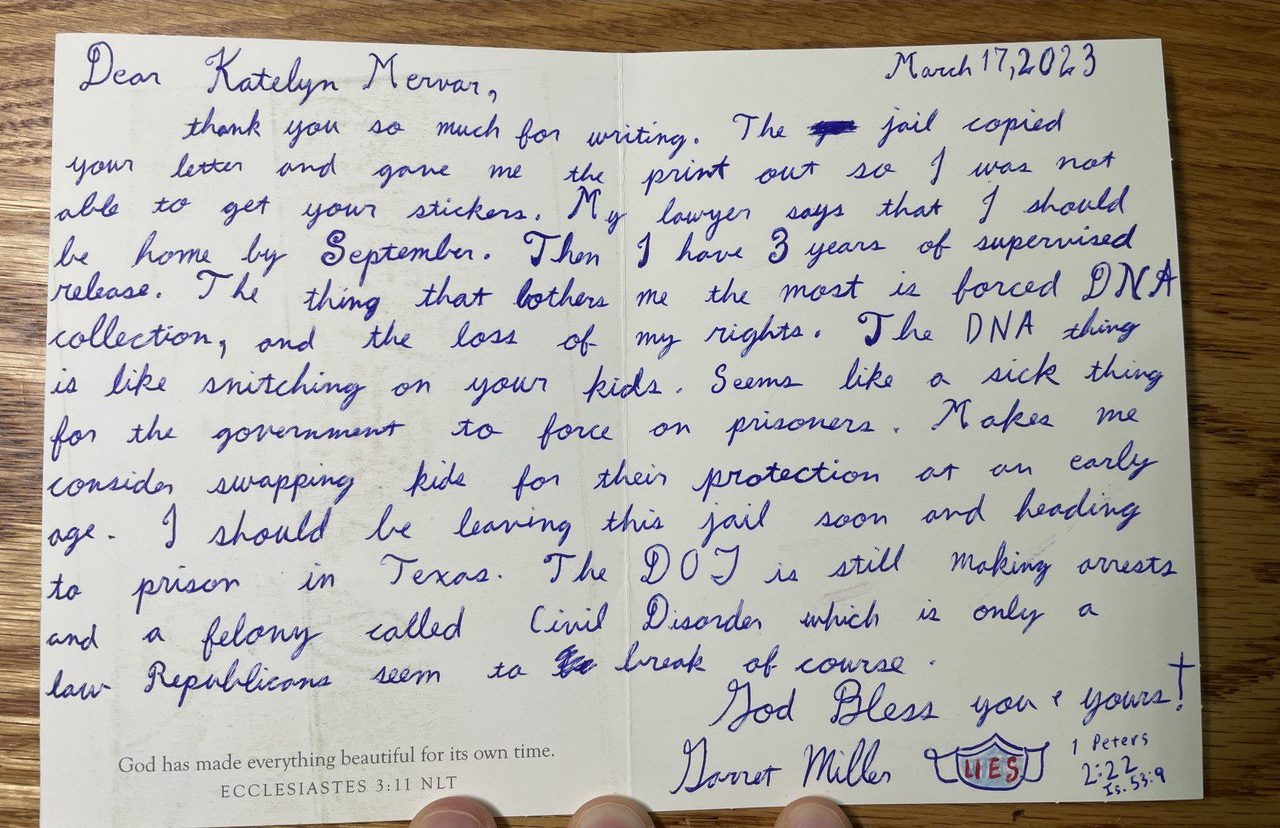 March 17, 2023
Dear Katelyn Mervar,
thank you so much for writing. The jail copied
your letter and gave me the print out so I was not
able to get your stickers. My lawyer says that I should
be home by September. Then I have 3 years of supervised
release. The thing that bothers me the most is forced DNA
collection, and the loss of my rights. The DNA thing
is like snitching on your kids. Seems like a sick thing
for the government to force on prisoners. Makes me
consider swapping kids for their protection at an early
age. I should be leaving this jail soon and heading
to prison in Texas. The DOJ is still making arrests
and a felony called Civil Disorder which is only a
law Republicans seem to break of course.
God Bless you & yours!
Garret Miller
LIES
1 Peters
2:22
Is. 53:9
God has made everything beautiful for its own time.
ECCLESIASTES 3:11 NLT